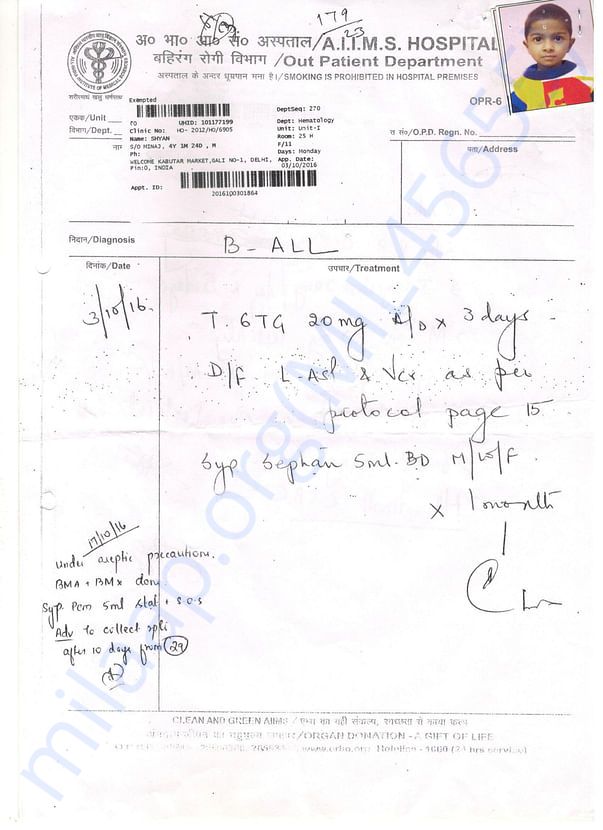 179
23
अ० भा० आ० सं० अस्पताल/A.I.I.M.S. HOSPITAL
बहिरंग रोगी विभाग /Out Patient Department
अस्पताल के अन्दर धूम्रपान मना है।/SMOKING IS PROHIBITED IN HOSPITAL PREMISES
OPR-6
Exempted
DeptSeq: 270
एकक/Unit
UHID: 101177199
Dept: Hematology
विभाग/Dept.
Clinic No: HO- 2012/HO/6905
Unit: Unit-I
Name: SHYAN
Room: 25 H
नाम
S/O MINAJ, 4Y 1M 24D , M
F/11
Ph:
Days: Monday
WELCOME KABUTAR MARKET,GALI NO-1, DELHI,
App. Date:
Pin:0, INDIA
03/10/2016
Appt. ID:
2016100301864
सं०/O.P.D. Regn. No.
पता/Address
निदान/Diagnosis
B-ALL
दिनांक/Date
उपचार/Treatment
3/10/16
T. 6TG 20mg A/D x 3 days
D/F L-Asp & Vcr as per
protocol page 15
Syp Sephan 5ml BD M/W/F
x 1 month
17/10/16
Under aseptic precautions.
BMA + BMx done
Syp. Pcm 5ml stat + s.o.s
Adv to collect
after 10 days from 29
CLEAN AND GREEN AIIMS / एम्स का यही संकल्प, स्वच्छता से काया कल्प
/ORGAN DONATION - A GIFT OF LIFE
www.orbo.org
milaap.org